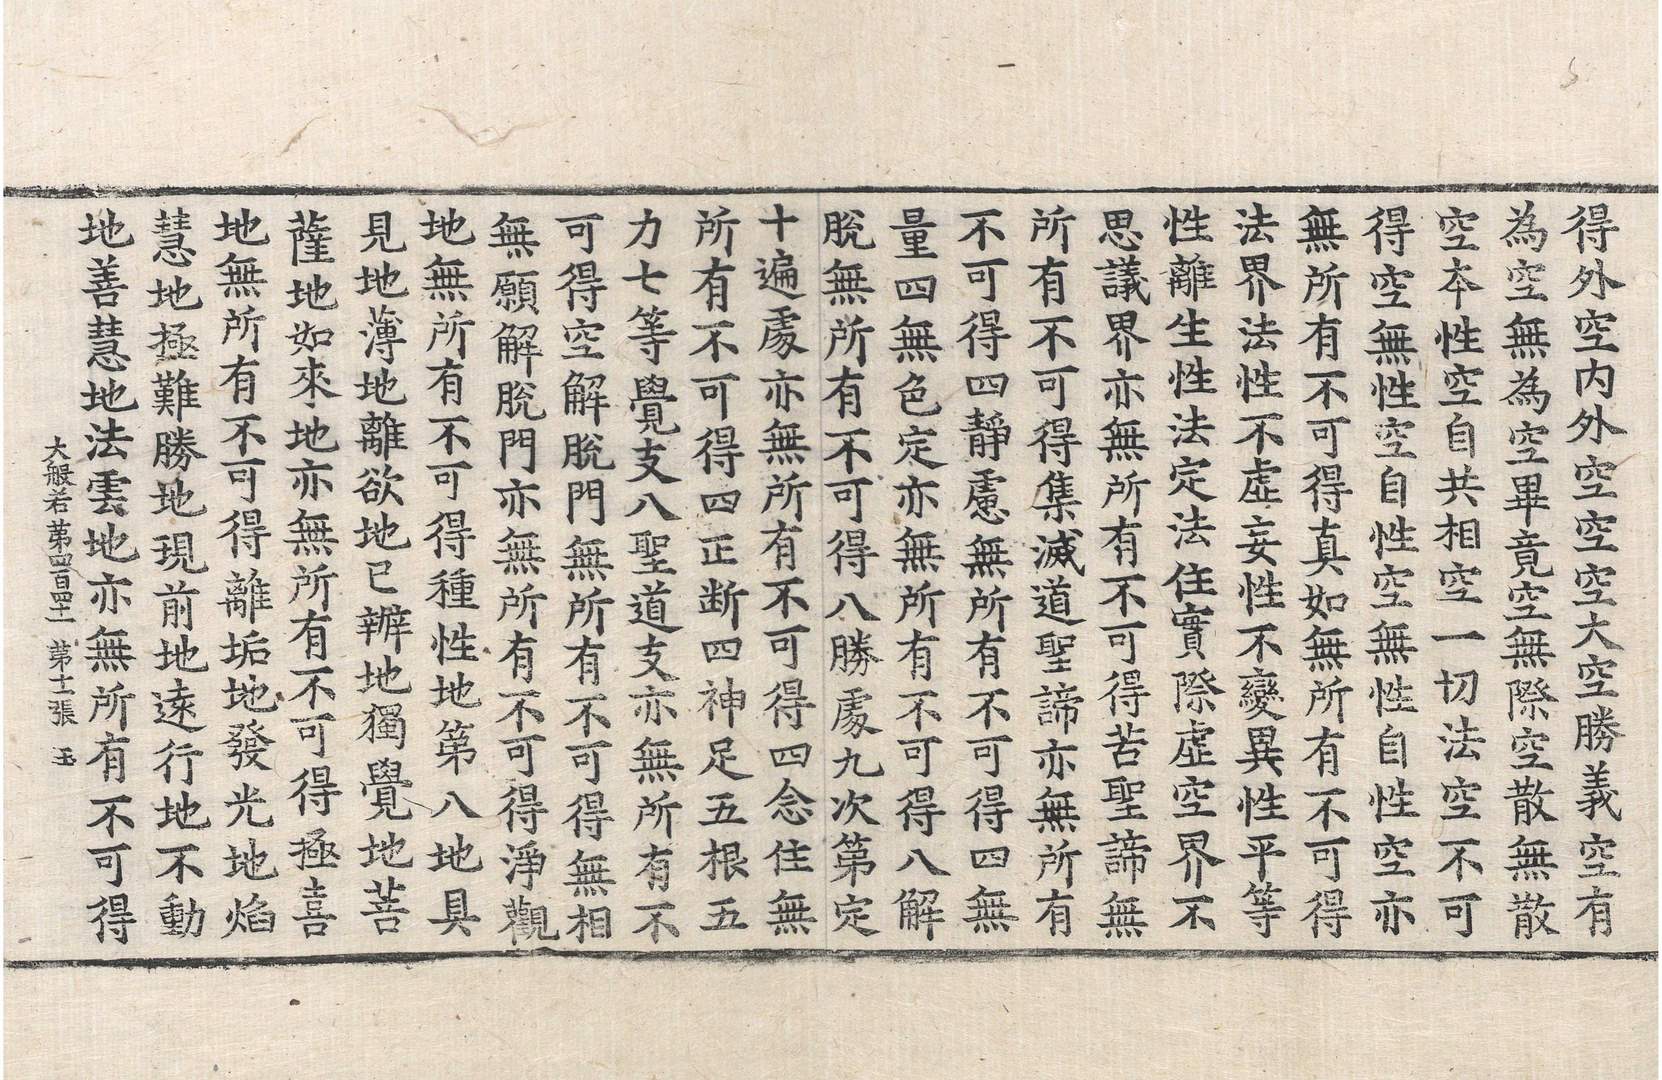 得外空内外空空空大空勝義空有
為空無為空畢竟空無際空散無散
空本性空自共相空一切法空不可
得空無性空自性空無性自性空亦
無所有不可得真如無所有不可得
法界法性不虛妄性不變異性平等
性離生性法定法住實際虛空界不
思議界亦無所有不可得苦聖諦無
所有不可得集滅道聖諦亦無所有
不可得四靜慮無所有不可得四無
量四無色定亦無所有不可得八解
脫無所有不可得八勝處九次第定
十遍處亦無所有不可得四念住無
所有不可得四正断四神足五根五
力七等覺支八聖道支亦無所有不
可得空解脫門無所有不可得無相
無願解脫門亦無所有不可得淨觀
地無所有不可得種性地第八地具
見地薄地離欲地已辦地獨覺地菩
薩地如來地亦無所有不可得極喜
地無所有不可得離垢地發光地焰
慧地極難勝地現前地遠行地不動
地善慧地法雲地亦無所有不可得
大般若苐四百四十一 苐十一張 玉